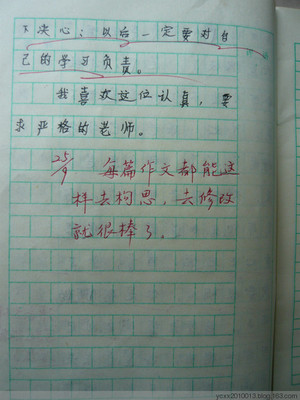 下决心：以后一定要对自
己的学习负责。
我喜欢这位认真，要
求严格的老师。
25/9 每篇作文都能这
样去构思，去修改
就很棒了。
ycxx2010013.blog.163.com